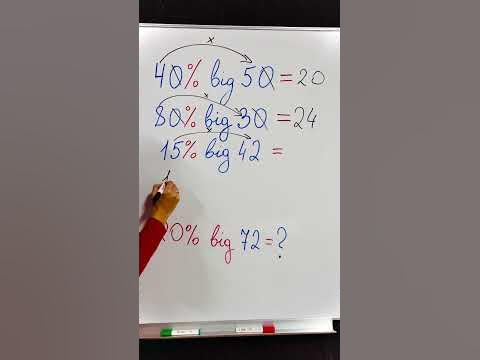 x
40% big 50 = 20
x
80% big 30 = 24
x
15% big 42 =
big 72 = ?